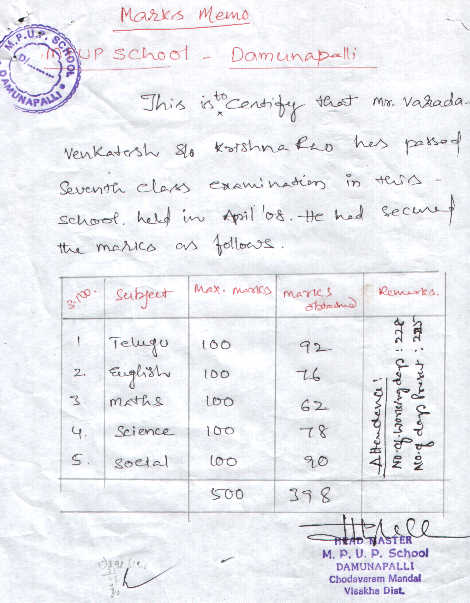 Marks Memo
M.P.U.P. SCHOOL
DAMUNAPALLI
M.P.UP School - Damunapalli
This is to Certify that mr. Varada-
Venkatesh S/o Krishna Rao has passed
Seventh class examination in this -
school. held in April '08. He had secured
the marks as follows.
S.no. Subject Max. marks marks obtained Remarks.
1 Telugu 100 92
2. English 100 76
3 maths 100 62
4. Science 100 78
5. Social 100 90
500 398
Attendence:
No. of. working days : 228
No of days Present : 225
HEAD MASTER
M. P. U. P. School
DAMUNAPALLI
Chodavaram Mandal
Visakha Dist.